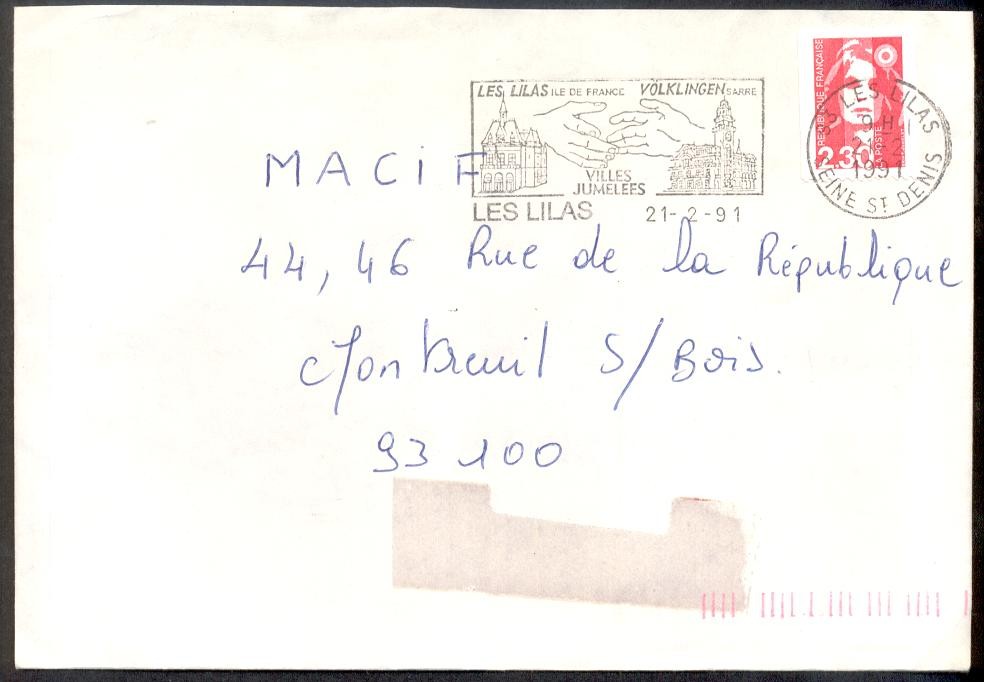 LES LILAS ILE DE FRANCE VOLKLINGEN SARRE
VILLES
JUMELEES
LES LILAS 21-2-91
REPUBLIQUE FRANÇAISE
2.30
LA POSTE
93 LES LILAS
9 H
21-2
1991
SEINE ST DENIS
MACIF
44, 46 Rue de la République
Montreuil S/Bois.
93 100